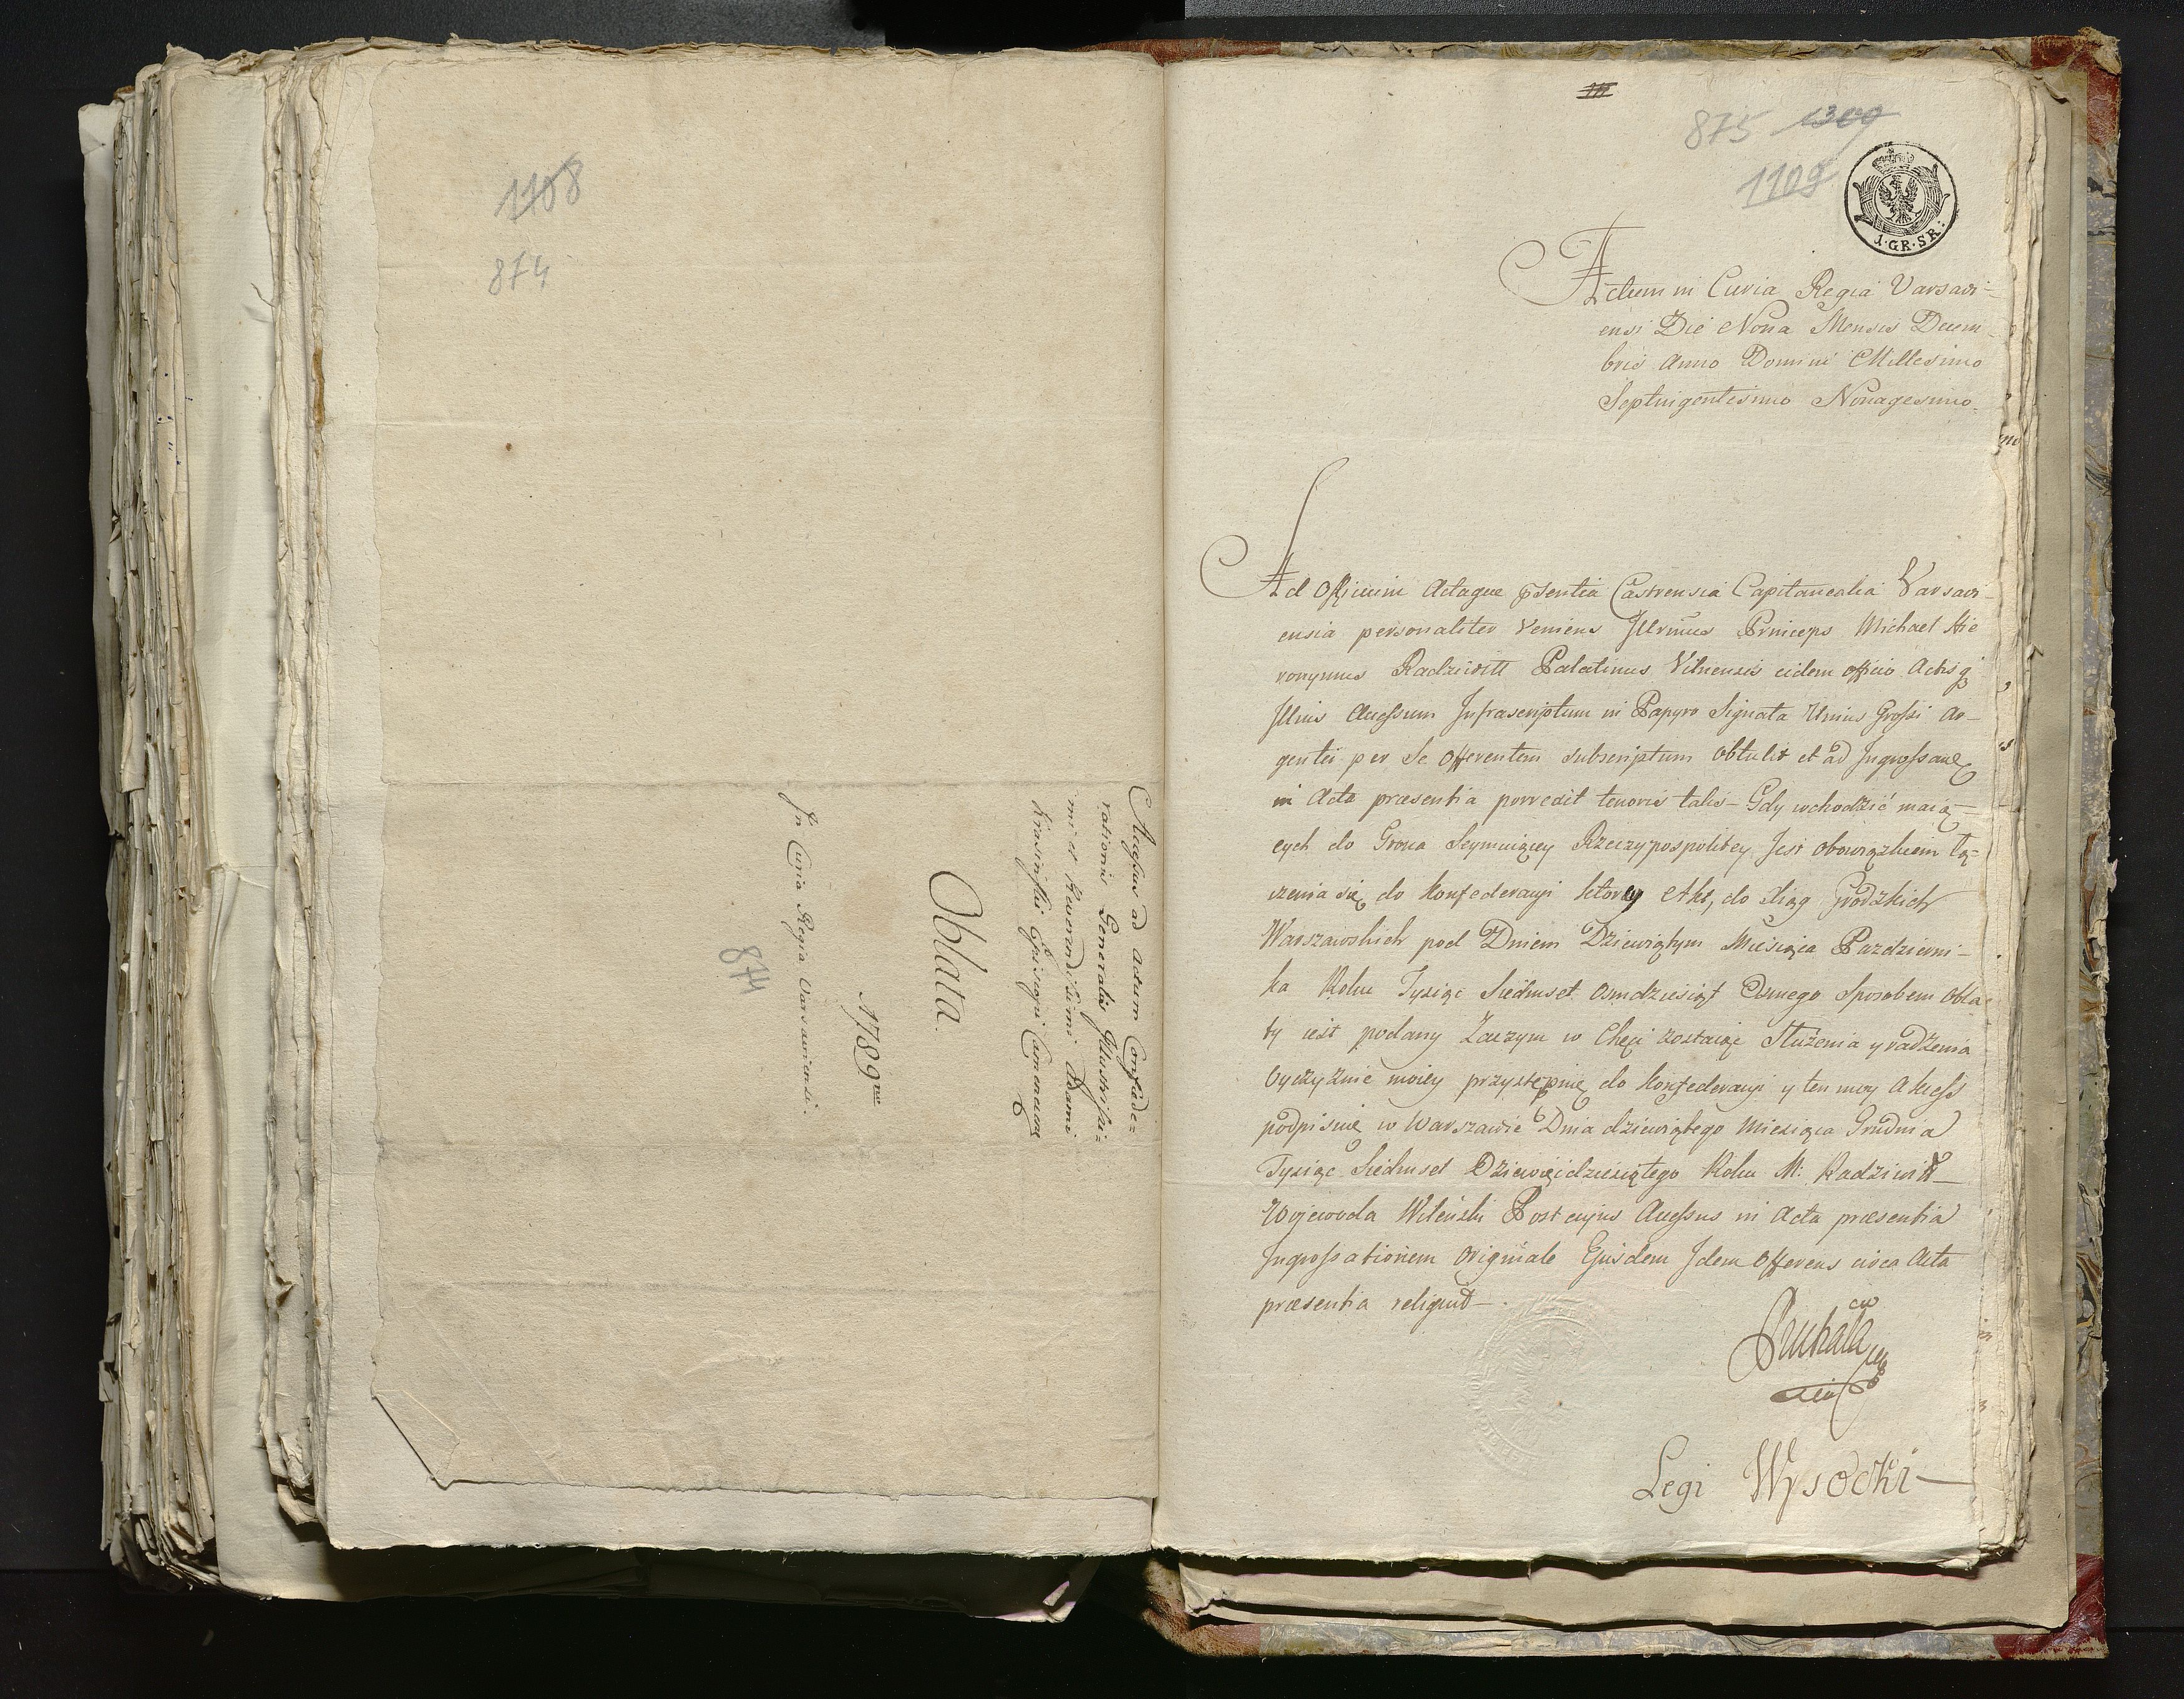 1108
874
Accessus ad Actum Confœde=
rationis Generalis Illustrissi=
mi et Reverendissimi Adami
Krasiński Episcopi
Oblata.
1789
In Curia Regia Varsaviensi.
874
875 1300
1109
1·GR·SR:
Actum in Curia Regia Varsavi-
ensi Die Nona Mensis Decem-
bris Anno Domini Millesimo
Septingentesimo Nonagesimo.
Ad Officium Actaque Castrensia Capitanealia Varsavi-
ensia personaliter Veniens Illrmus Princeps Michael Hie
ronymus Radziwill Palatinus Vilnensis eidem officio Actisq
Illius Accessum Infrascriptum in Papyro Signata Unius Grossi Ar-
gentei per Se Offerentem subscriptum Obtulit et ad
in Acta præsentia porrexit tenoris talis- Gdy wchodzić maią-
cych do Grona Seymuiącey Rzeczypospolitey Jest obowiązkiem łą=
czenia się do Konfederacyi ktorey Akt, do Xiąg Grodzkich
Warszawskich pod Dniem Dziewiątym Miesiąca Pazdzierni-
ka Roku Tysiąc Siedmset Osmdziesiąt Osmego Sposobem Obla
ty iest podany Zaczym w Chęci zostaiąc Służenia y radzenia
Oyczyznie moiey przystępuię do Konfederacyi y ten moy Akcess
podpisuię w Warszawie Dnia dziewiątego Miesiąca Grudnia
Tysiąc Siedmset Dziewięcdziesiątego Roku M: Radziwiłł-
Wojewoda Wileński Post cujus Accessus in Acta præsentia
Ingrossationem Originale Ejusdem Idem Offerens circa Acta
præsentia reliquit-.
Legi Wysocki-